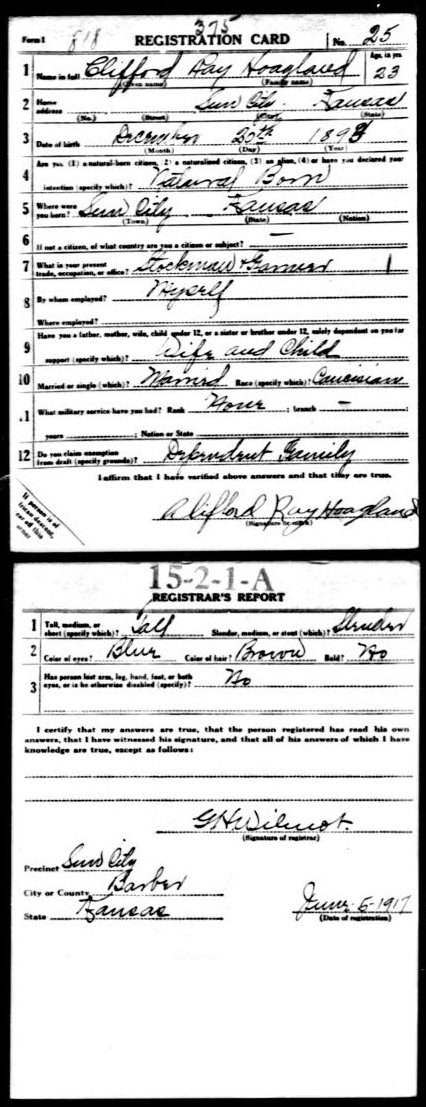 375
Form 1 818 REGISTRATION CARD No. 25
1 Name in full Clifford Ray Hoagland Age, in yrs. 23
(Given name) (Family name)
2 Home address Sun City Kansas
(No.) (Street) (City) (State)
3 Date of birth December 20th 1893
(Month) (Day) (Year)
4 Are you (1) a natural-born citizen, (2) a naturalized citizen, (3) an alien, (4) or have you declared your
intention (specify which)? Natural Born
5 Where were you born? Sun City Kansas
(Town) (State) (Nation)
6 If not a citizen, of what country are you a citizen or subject? —
7 What is your present trade, occupation, or office? Stockman & Farmer 1
8 By whom employed? Myself
Where employed?
9 Have you a father, mother, wife, child under 12, or a sister or brother under 12, solely dependent on you for
support (specify which)? Wife and Child
10 Married or single (which)? Married Race (specify which)? Caucisian
11 What military service have you had? Rank None ; branch — ;
years ; Nation or State
12 Do you claim exemption from draft (specify grounds)? Dependent Family
I affirm that I have verified above answers and that they are true.
Clifford Ray Hoagland
(Signature or mark)
If person is of
African descent,
tear off this
corner
15-2-1-A
REGISTRAR'S REPORT
1 Tall, medium, or short (specify which)? Tall Slender, medium, or stout (which)? Slender
2 Color of eyes? Blue Color of hair? Brown Bald? No
3 Has person lost arm, leg, hand, foot, or both
eyes, or is he otherwise disabled (specify)? No
I certify that my answers are true, that the person registered has read his own
answers, that I have witnessed his signature, and that all of his answers of which I have
knowledge are true, except as follows:
G H Wilmot.
(Signature of registrar)
Precinct Sun City
City or County Barber
State Kansas June 5-1917
(Date of registration)